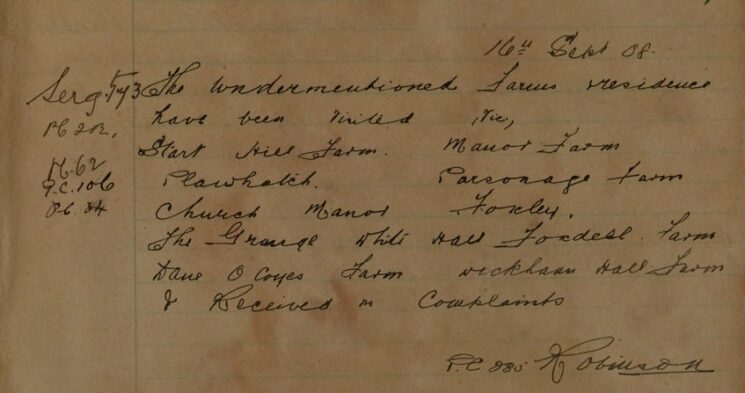 16th Sept 08.
Sergt 573 The undermentioned Farms & residence
P.C 202, have been visited, Viz,
Start Hill Farm. Manor Farm
H. 62 Plawhatch. Parsonage Farm
P.C. 106
P.C 34 Church Manor Foxley,
The Grange White Hall Foxdell Farm
Dane O Coyes Farm Wickham Hall Farm
& Received no Complaints
P.C 335 Robinson